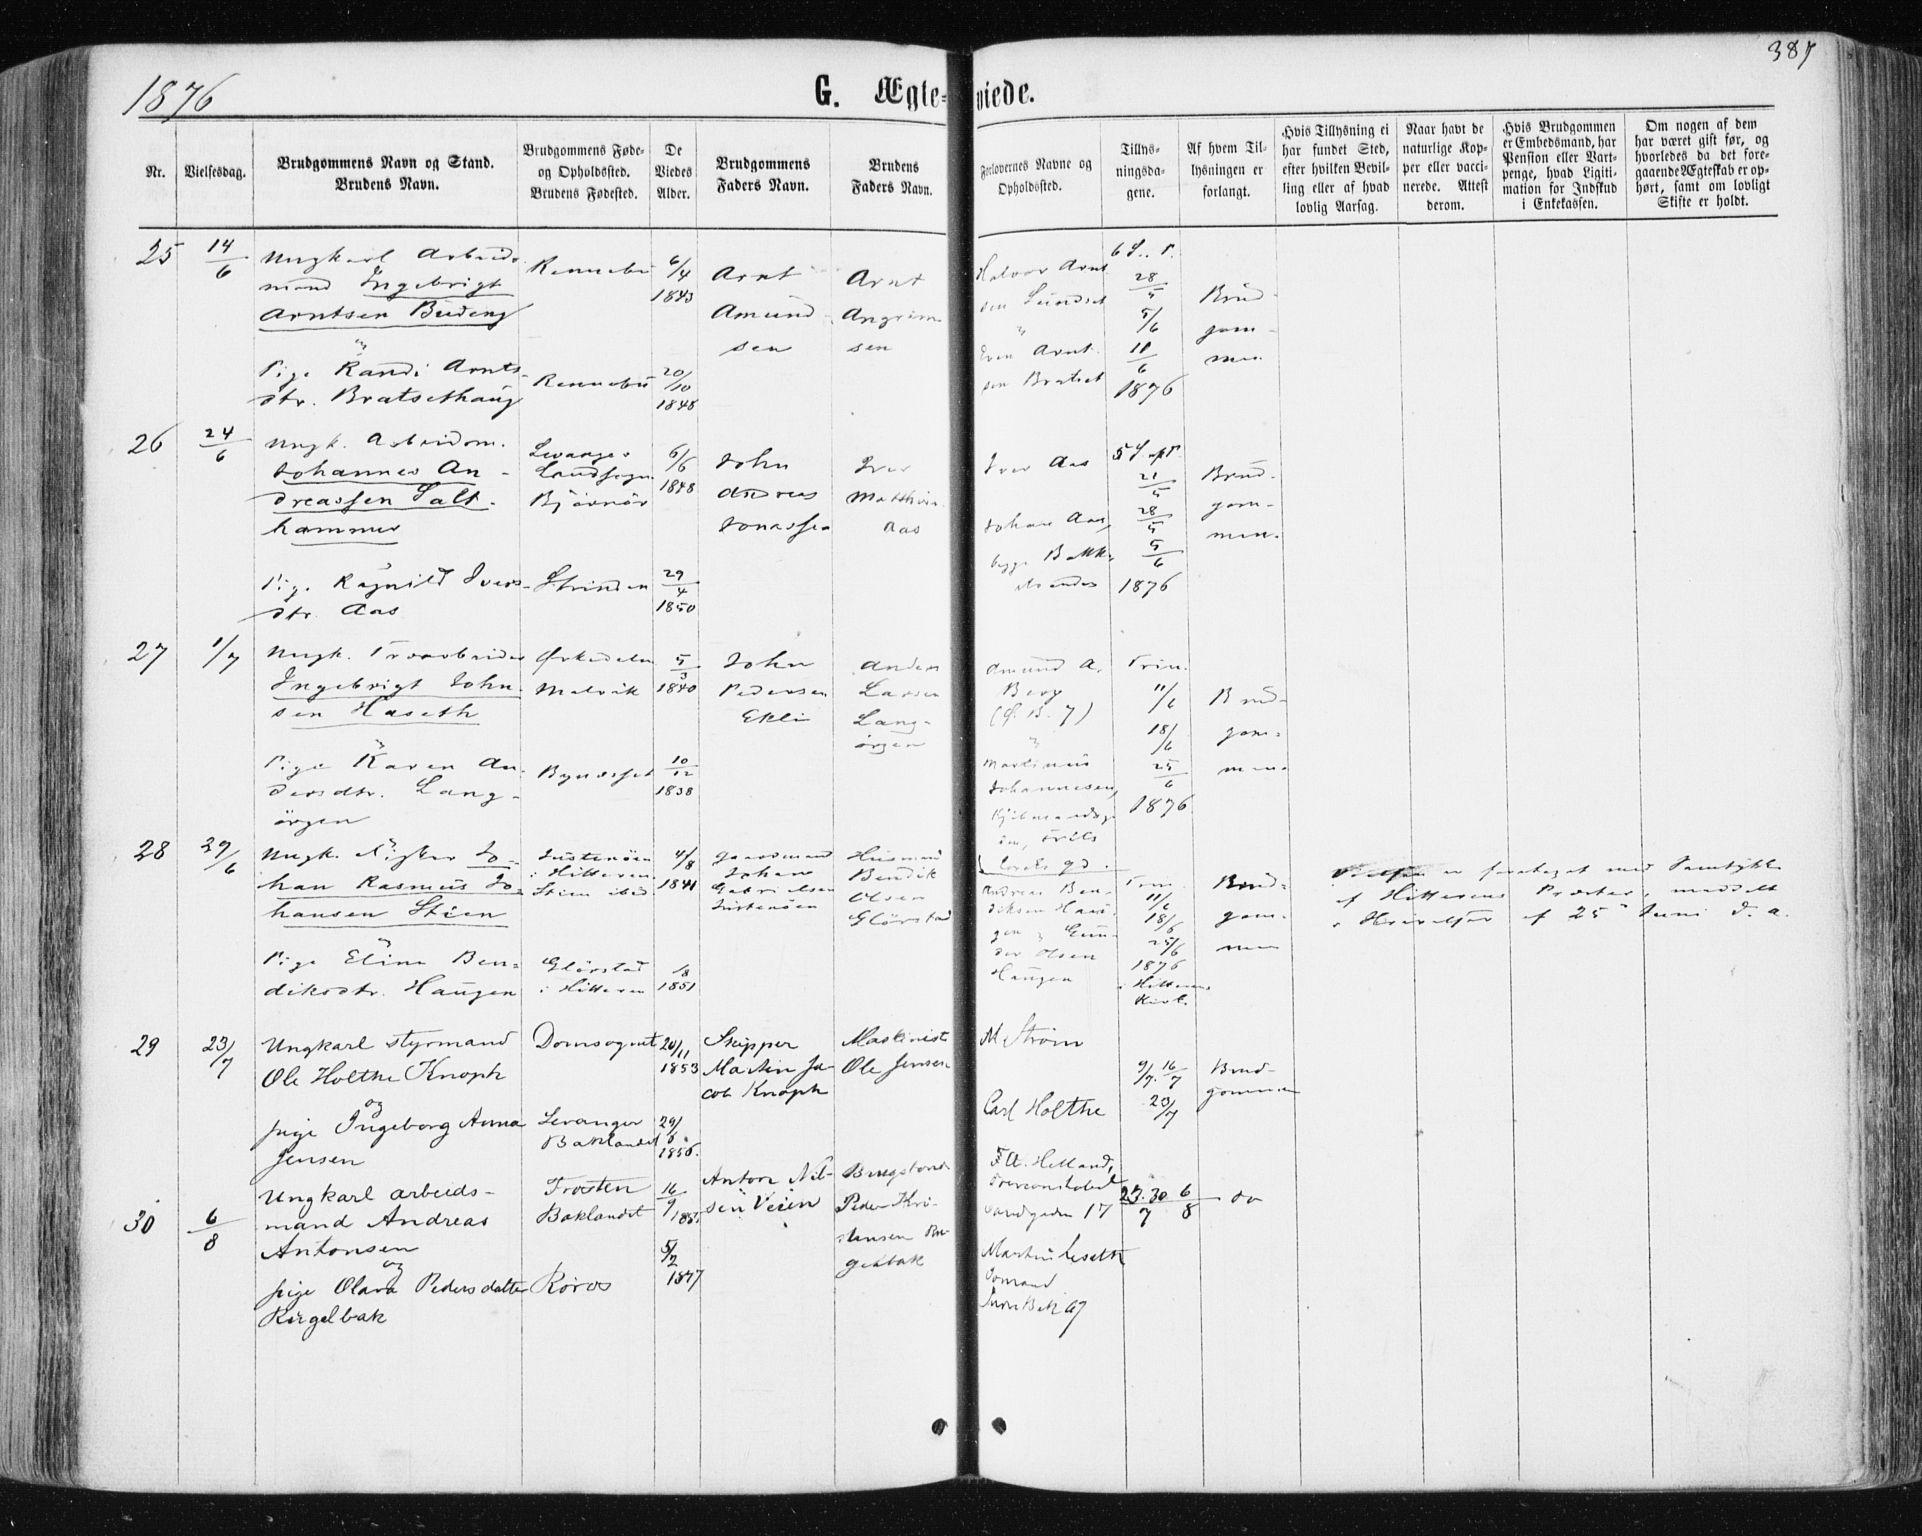 1876
387
G. Ægte-viede.
Nr.
Vielsesdag.
Brudgommens Navn og Stand.
Brudens Navn.
Brudgommens Føde-
og Opholdssted.
Brudens Fødested.
De
Viedes
Alder.
Brudgommens
Faders Navn.
Brudens
Faders Navn.
Forlovernes Navne og
Opholdssted.
Tillys-
ningsda-
gene.
Af hvem Til-
lysningen er
forlangt.
Hvis Tillysning ei
har fundet Sted,
efter hvilken Bevil-
ling eller af hvad
lovlig Aarsag.
Naar havt de
naturlige Kop-
per eller vacci-
nerede. Attest
derom.
Hvis Brudgommen
er Embedsmand, har
Pension eller Vart-
penge, hvad Legiti-
mation for Indskud
i Enkekassen.
Om nogen af dem
har været gift før, og
hvorledes da det fore-
gaaende Ægteskab er op-
hørt, samt om lovligt
Skifte er holdt.
25
14/6
Ungkarl Arbeids-
mand Ingebrigt
Arntsen Budeng
og
Pige Randi Arnts-
dtr. Bratsethaug
Rennebu
Rennebu
6/4
1843
20/10
1848
Arnt
Amund-
sen
Arnt
Angrim-
sen
Halvor Arnt
sen Lundset
og
Even Arnt-
sen Bratset
28/5
5/6
11/6
1876
Brud-
gom-
men
26
24/6
Ungk. Arbeidsm.
Johannes An-
dreassen Salt-
hammer
og
Pige Ragnild Ivers-
dtr. Aas
Levanger
Landsogn
Bjørnør
Strinden
6/6
1848
29/4
1850
John
Andreas
Jonassen
Iver
Aas
Iver Aas
Johan Aas,
21/5
28/5
5/6
1876
Brud-
gom-
men.
27
1/7
Ungk.
Ingebrigt John-
sen Haseth
og
Pige Karen An-
dersdtr. Lang-
örgen
Ørkedalen
Malvik
Bynesset
5/3
1840
10/12
1838
John
Pedersen
Ekli
Anders
Larsen
Lang-
örgen
Amund A.
Berg
(Ø. B. 7)
og
Martinus
Johannesen,
Trin.
11/6
18/6
25/6
1876
Brud-
gom-
men.
28
29/6
Ungk. Fisker Jo-
han Rasmus Jo-
hansen Stien
og
Pige Eline Ben-
diksdtr. Haugen
i Hitteren
Stien ibid
Glørstad
i Hitteren
4/8
1841
1851
Gaardmand
Johan
Gabrielsen
Husmand
Bendik
Olsen
Glørstad
Andreas Ben-
diksen Hau-
gen og Gun-
der Olsen
Haugen
Trin.
11/6
18/6
25/6
1876
i Hitterens
Kirke
Brud-
gom-
men
er foretaget med Samtykke
af Hitterens Præster, meddelt
i Skrivelse af 25 Juni d. a.
29
23/7
Ungkarl styrmand
Ole Holthe Knoph
og
pige Ingeborg Anna
Jensen
Domsognet
Levanger
Baklandet
20/11
1853
29/6
1856.
Skipper
Martin Ja-
cob Knoph
Maskinist
Ole Jensen
M Strøm
Carl Holthe
9/7. 16/7
23/7
Brud-
gommen
30
6/8
Ungkarl arbeids-
mand Andreas
Antonsen
og
pige Olava Pedersdatter
Rugelbak
Frosten
Baklandet
Röros
16/9
5/2
1847
Anton Nil-
sen Veien
Peder Kri-
stiansen Ru-
gelbak
Helland,
Sandgaden 17
Martin
23. 30/7 6/8
do